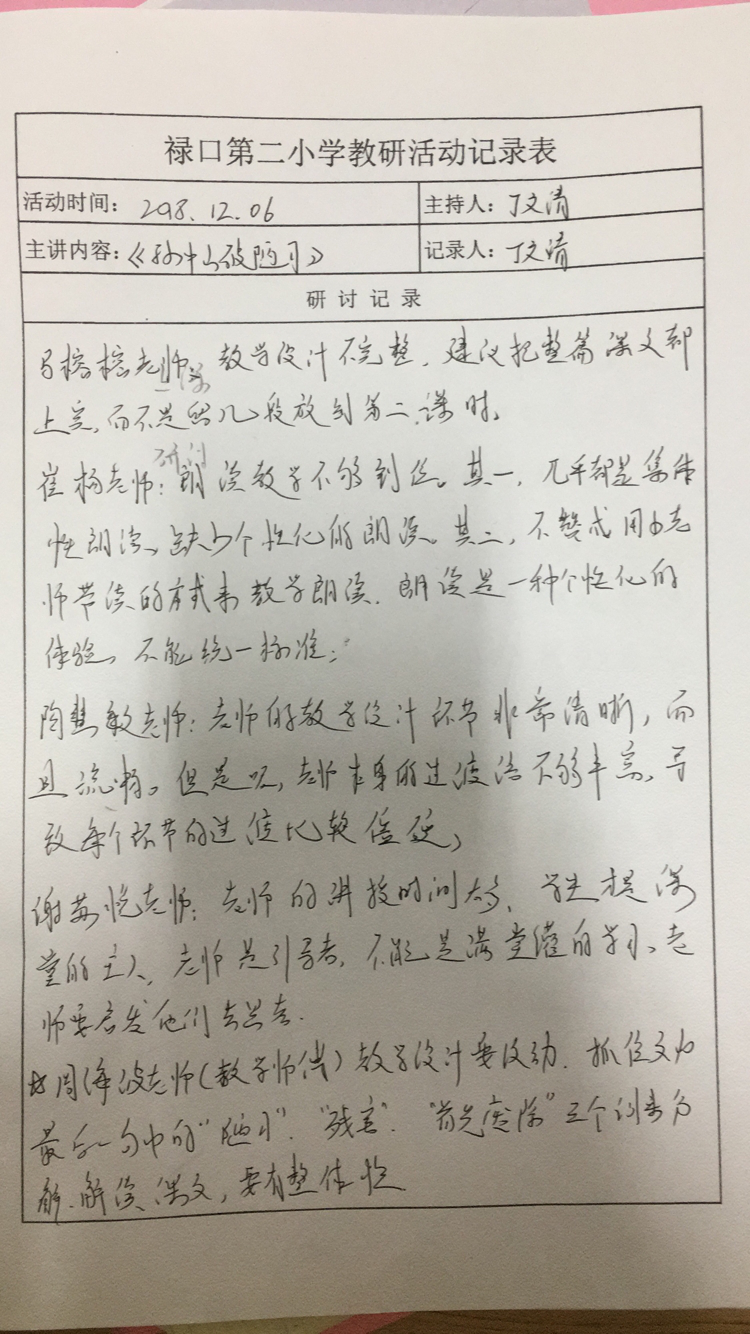 禄口第二小学教研活动记录表
活动时间：2018.12.06
主持人：丁文清
主讲内容：《孙中山破陋习》
记录人：丁文清
研讨记录
马榕榕老师：教学设计不完整，建议把整篇课文都
上完，而不是留几段放到第二课时。
崔杨老师：朗读教学不够到位。其一，几乎都是集体
性朗读，缺少个性化的朗读。其二，不赞成用由老
师带读的方式来教学朗读，朗读是一种个性化的
体验，不能统一标准；
陶慧敏老师：老师的教学设计环节非常清晰，而
且流畅。但是呢，老师本身的过渡语不够丰富，导
致每个环节的过渡比较僵硬，
谢苏悦老师：老师的讲授时间太多，学生是课
堂的主人，老师是引导者，不能是满堂灌的学习，老
师要启发他们去思考．
周海波老师（教学师傅）教学设计要改动．抓住文中
最后一句中的“陋习”．“残害”．“首先废除”三个词来分
解．解读课文，要有整体性